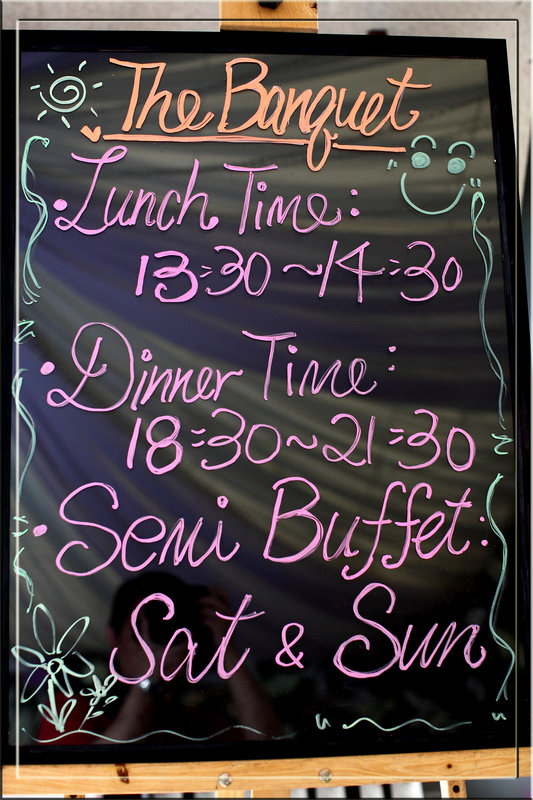 The Banquet
• Lunch Time:
13:30 ~ 14:30
• Dinner Time:
18:30 ~ 21:30
• Semi Buffet:
Sat & Sun